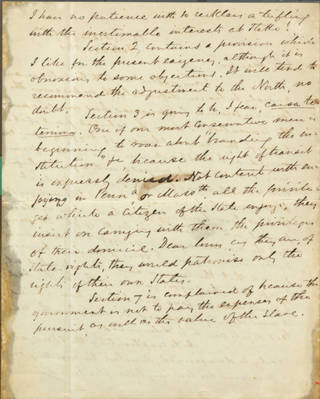 I have no patience with so reckless a trifling
with the inestimable interests at stake!
Section 2 contains a provision which
I like for the present exigency, although it is
obnoxious to some objections. It will tend to
recommend the adjustment to the North, no
doubt.
Section 3 is going to be, I fear, cause
One of our most conservative men is
beginning to roar about "branding the in-
stitution" &c because the right of transit
is expressly denied. Not content with en-
joying in Penna or Massts all the privile-
ges which a citizen of the State enjoys, they
insist on carrying with them the privileges
of their domicil. Dear lovers as they are of
State rights, they would patronise only the
rights of their own States.
Section 7 is complained of because the
government is not to pay the expenses of the
pursuit as well as the value of the Slave.